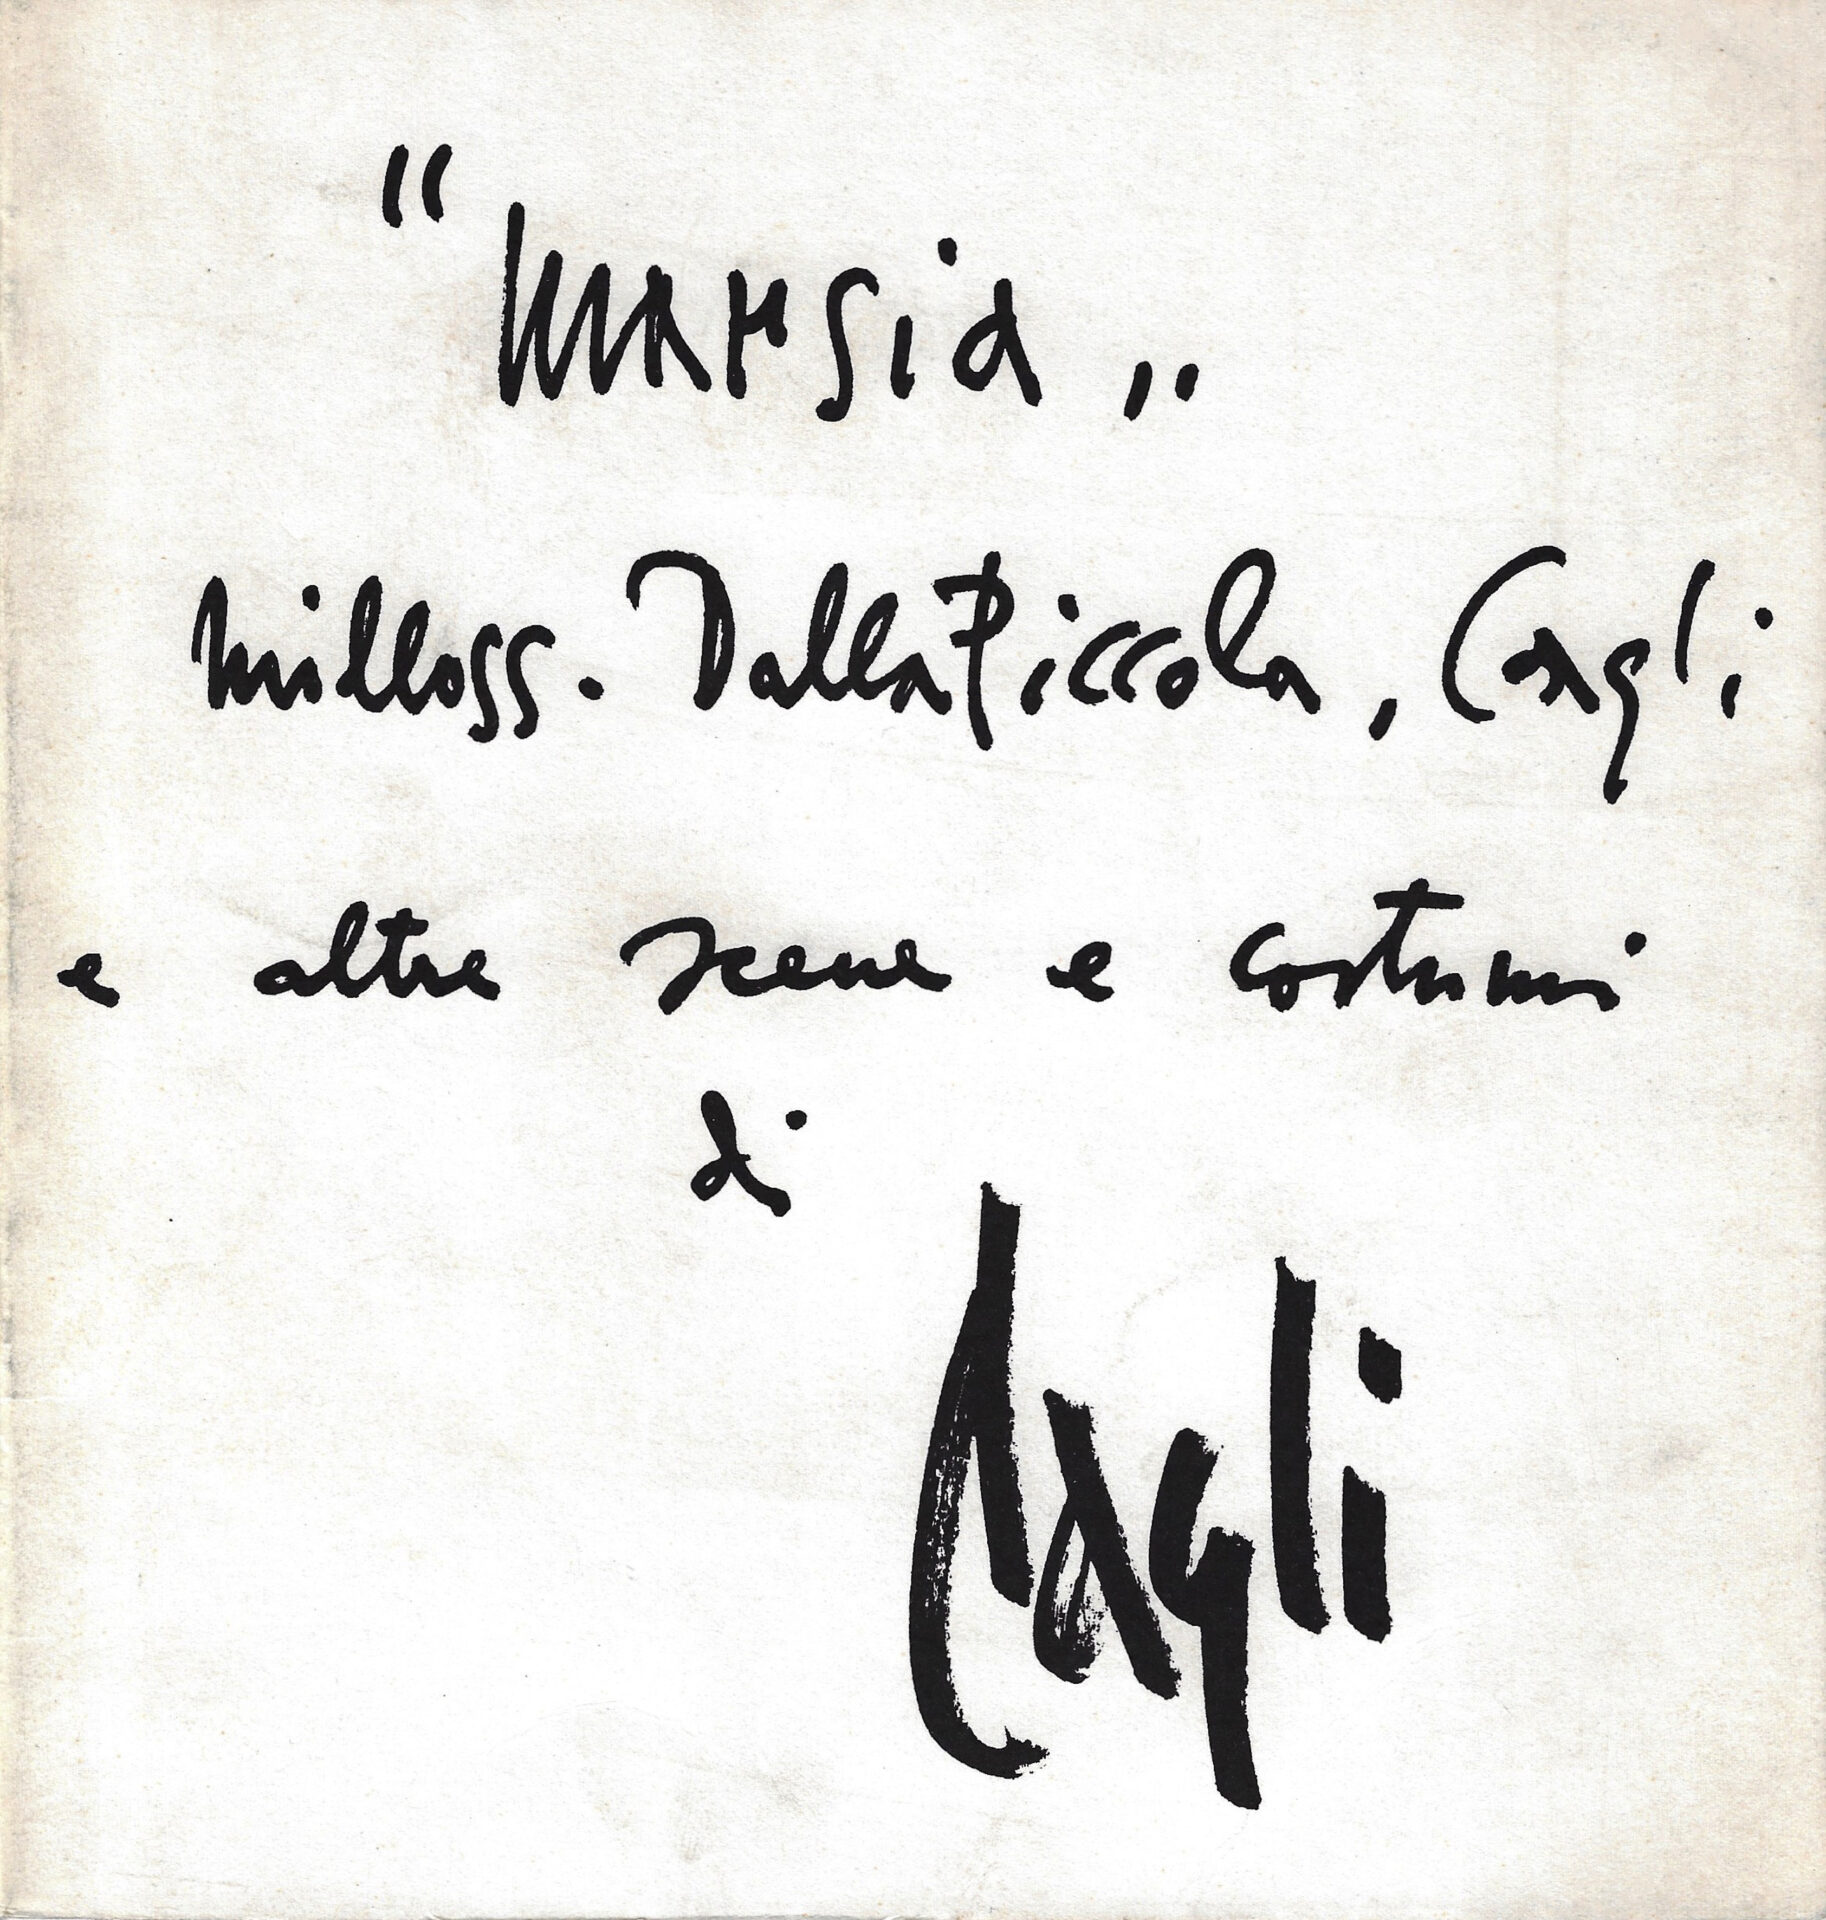 "Marsia„
Milloss. DallaPiccola, Cagli
e altre scene e costumi
di
Cagli